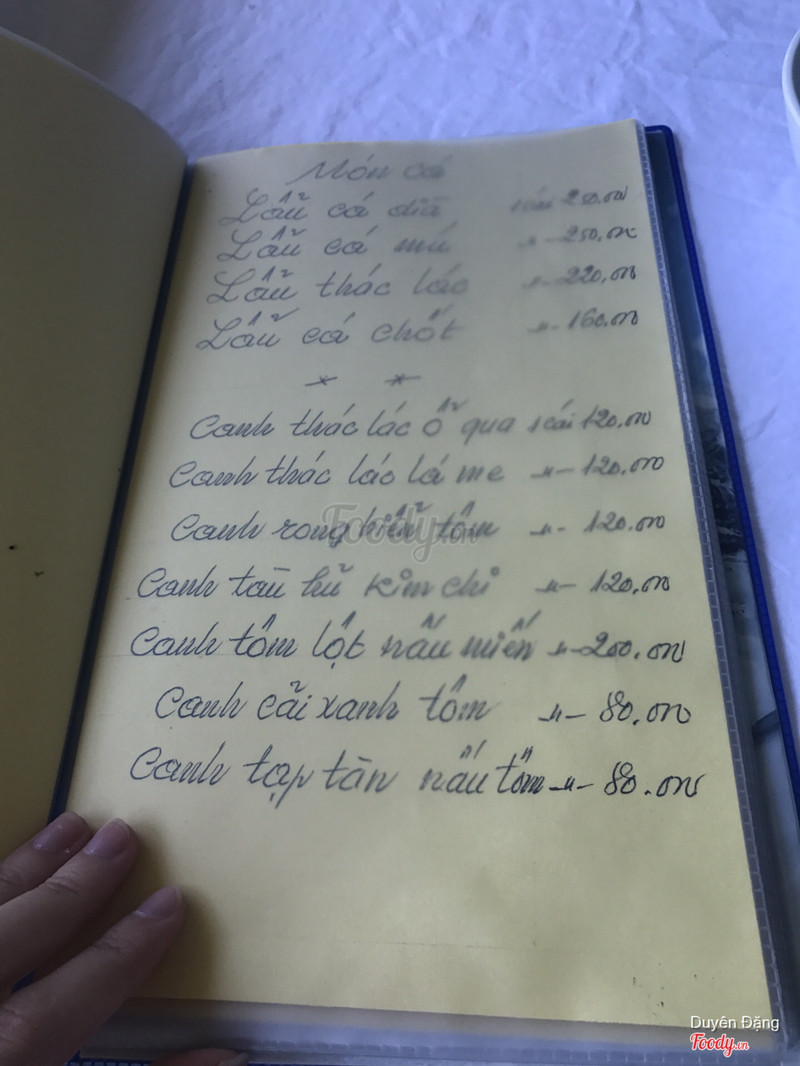 Món cá
Lẩu cá dĩa 1 cái 250.000
Lẩu cá mú -"- 250.000
Lẩu thác lác -"- 220.000
Lẩu cá chốt -"- 160.000
Canh thác lác ổ qua 1 cái 120.000
Canh thác lác lá me -"- 120.000
Canh rong biển tôm -"- 120.000
Canh tàu hũ kim chi -"- 120.000
Canh tôm lột nấu miến -"- 200.000
Canh cải xanh tôm -"- 80.000
Canh tạp tàn nấu tôm -"- 80.000
Foody.vn
Duyên Đặng
Foody.vn